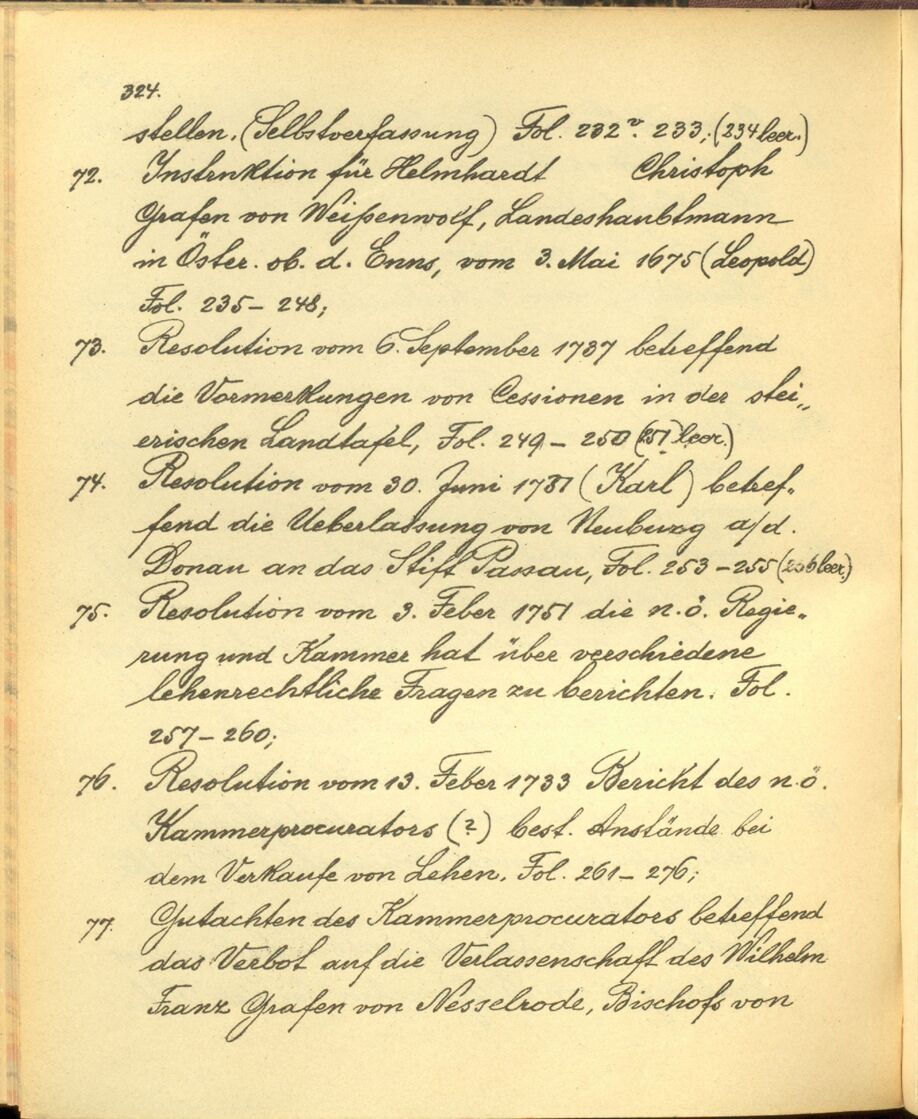 324.
stellen. (Selbstverfassung) Fol. 232 v. 233; (234 leer.)
72. Instruktion für Helmhardt Christoph
Grafen von Weißenwolf, Landeshaubtmann
in Öster. ob. d. Enns, vom 3. Mai 1675 (Leopold)
Fol. 235 – 248;
73. Resolution vom 6. September 1737 betreffend
die Vormerkungen von Cessionen in der stei„
erischen Landtafel, Fol. 249 – 250 (251 leer.)
74. Resolution vom 30. Juni 1731 (Karl) betref„
fend die Ueberlassung von Neuburg a/d.
Donau an das Stift Passau, Fol. 253 – 255 (256 leer.)
75. Resolution vom 3. Feber 1751 die n.ö. Regie„
rung und Kammer hat über verschiedene
lehenrechtliche Fragen zu berichten. Fol.
257 – 260;
76. Resolution vom 13. Feber 1733 Bericht des n.ö.
Kammerprocurators (?) best. Anstände bei
dem Verkaufe von Lehen. Fol. 261 – 276;
77. Gutachten des Kammerprocurators betreffend
das Verbot auf die Verlassenschaft des Wilhelm
Franz Grafen von Nesselrode, Bischofs von